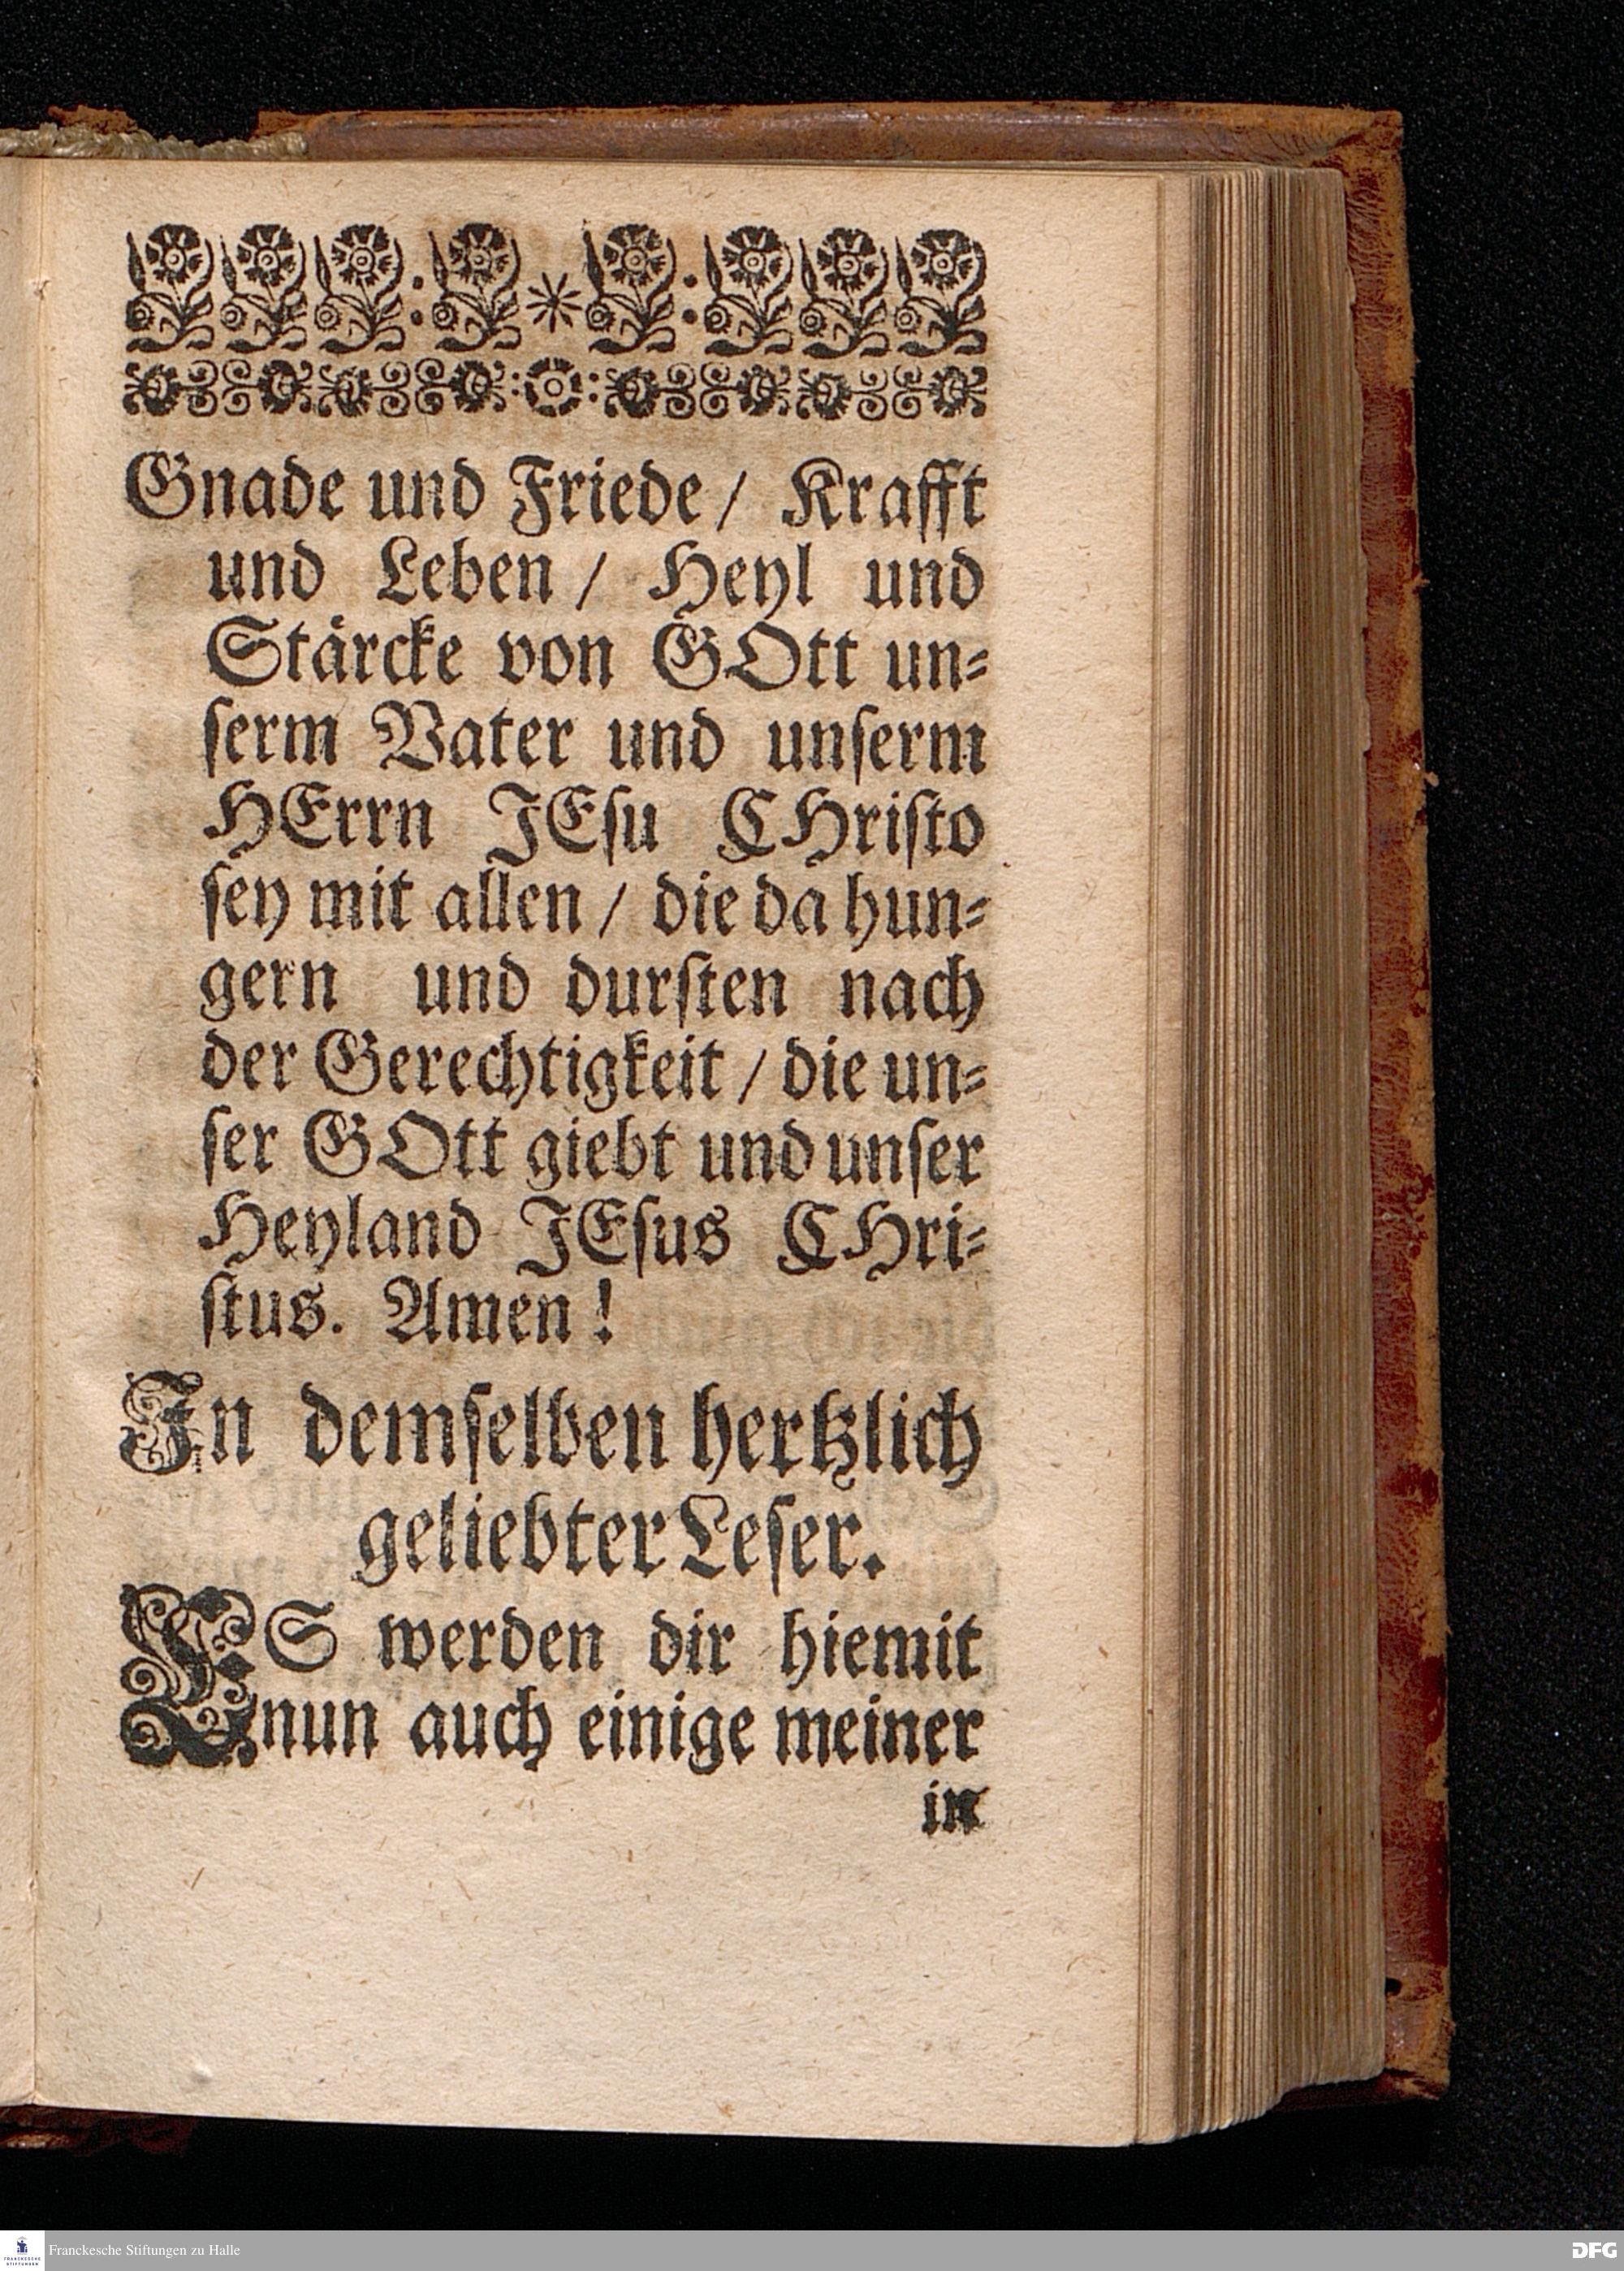 Gnade und Friede / Krafft
und Leben / Heyl und
Stärcke von GOtt un⸗
ſerm Vater und unſerm
HErrn JEſu CHriſto
ſey mit allen / die da hun⸗
gern und durſten nach
der Gerechtigkeit / die un⸗
ſer GOtt giebt und unſer
Heyland JEſus CHri⸗
ſtus. Amen!
In demſelben hertzlich
geliebter Leſer.
ES werden dir hiemit
nun auch einige meiner
in
FRANCKESCHE STIFTUNGEN
Franckesche Stiftungen zu Halle
DFG